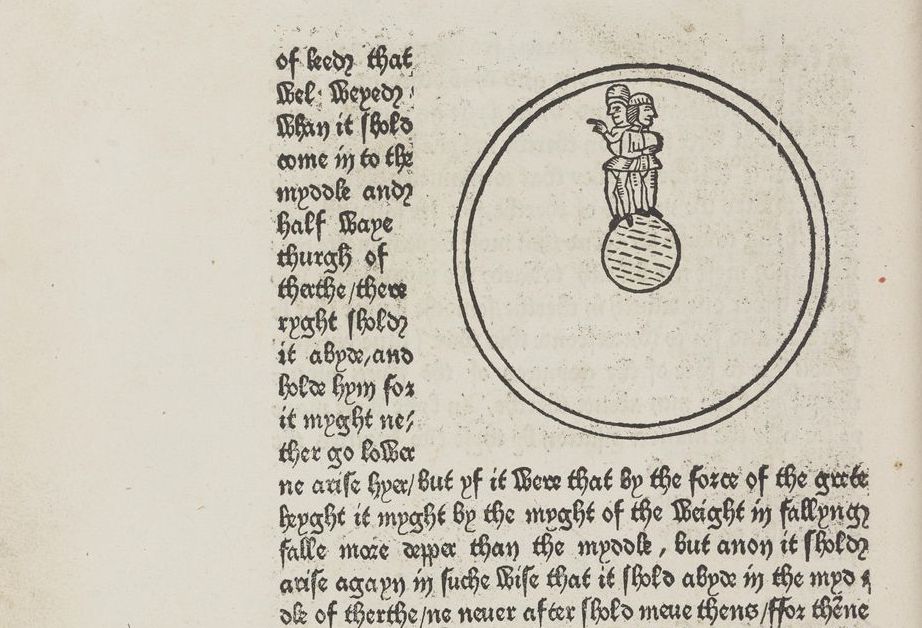 of leed that
Wel Weyed
Whan it shold
come in to the
myddle and
half Waye
thurgh of
therthe/there
ryght shold
it abyde/and
holde hym for
it myght ne/
ther go lower
ne arise hyer/but yf it Were that by the force of the grete
heyght it myght by the myght of the Weight in fallyng
falle more depper than the myddle, but anon it shold
arise agayn in suche Wise that it shold abyde in the myd
dle of therthe/ne neuer after shold meue thens/ffor thēne